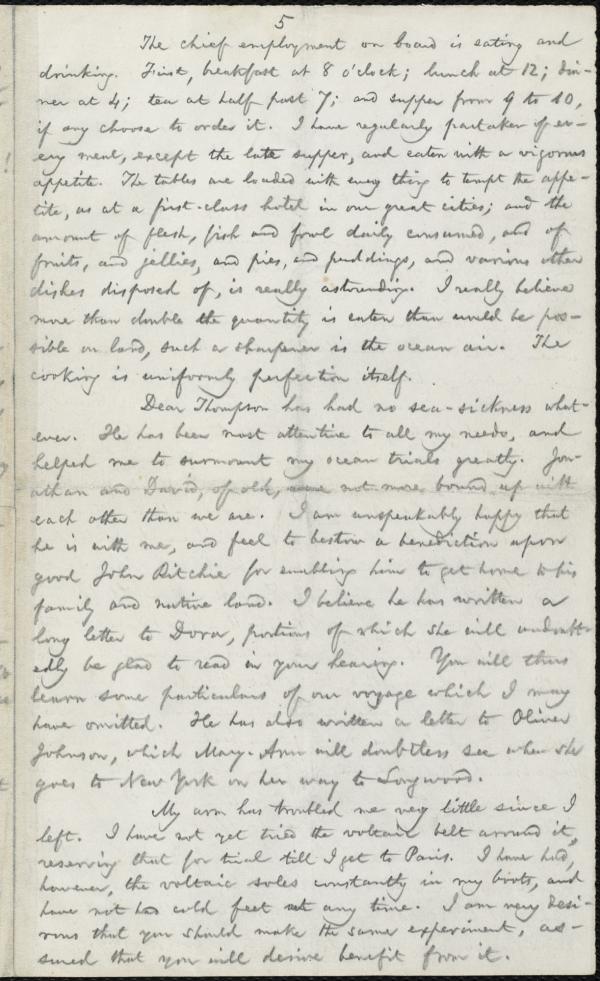 5
The chief employment on board is eating and
drinking. First, breakfast at 8 o'clock; lunch at 12; din-
ner at 4; tea at half past 7; and supper from 9 to 10,
if any choose to order it. I have regularly partaken of ev-
ery meal, except the late supper, and eaten with a vigorous
appetite. The tables are loaded with every thing to tempt the appe-
tite, as at a first-class hotel in our great cities; and the
amount of flesh, fish and fowl daily consumed, and of
fruits, and jellies, and pies, and puddings, and various other
dishes disposed of, is really astounding. I really believe
more than double the quantity is eaten than would be pos-
sible on land, such a sharpener is the ocean air. The
cooking is uniformly perfection itself.
Dear Thompson has had no sea-sickness what-
ever. He has been most attentive to all my needs, and
helped me to surmount my ocean trials greatly. Jon-
athan and David, of old, were not more bound up with
each other than we are. I am unspeakably happy that
he is with me, and feel to bestow a benediction upon
good John Ritchie for enabling him to get home to his
family and native land. I believe he has written a
long letter to Dora, portions of which she will undoubt-
edly be glad to read in your hearing. You will thus
learn some particulars of our voyage which I may
have omitted. He has also written a letter to Oliver
Johnson, which Mary-Ann will doubtless see when she
goes to New York on her way to Longwood.
My arm has troubled me very little since I
left. I have not yet tried the voltaic belt around it,
reserving that for trial till I get to Paris. I have had,
however, the voltaic soles constantly in my boots, and
have not had cold feet at any time. I am very desi-
rous that you should make the same experiment, as-
sured that you will derive benefit from it.